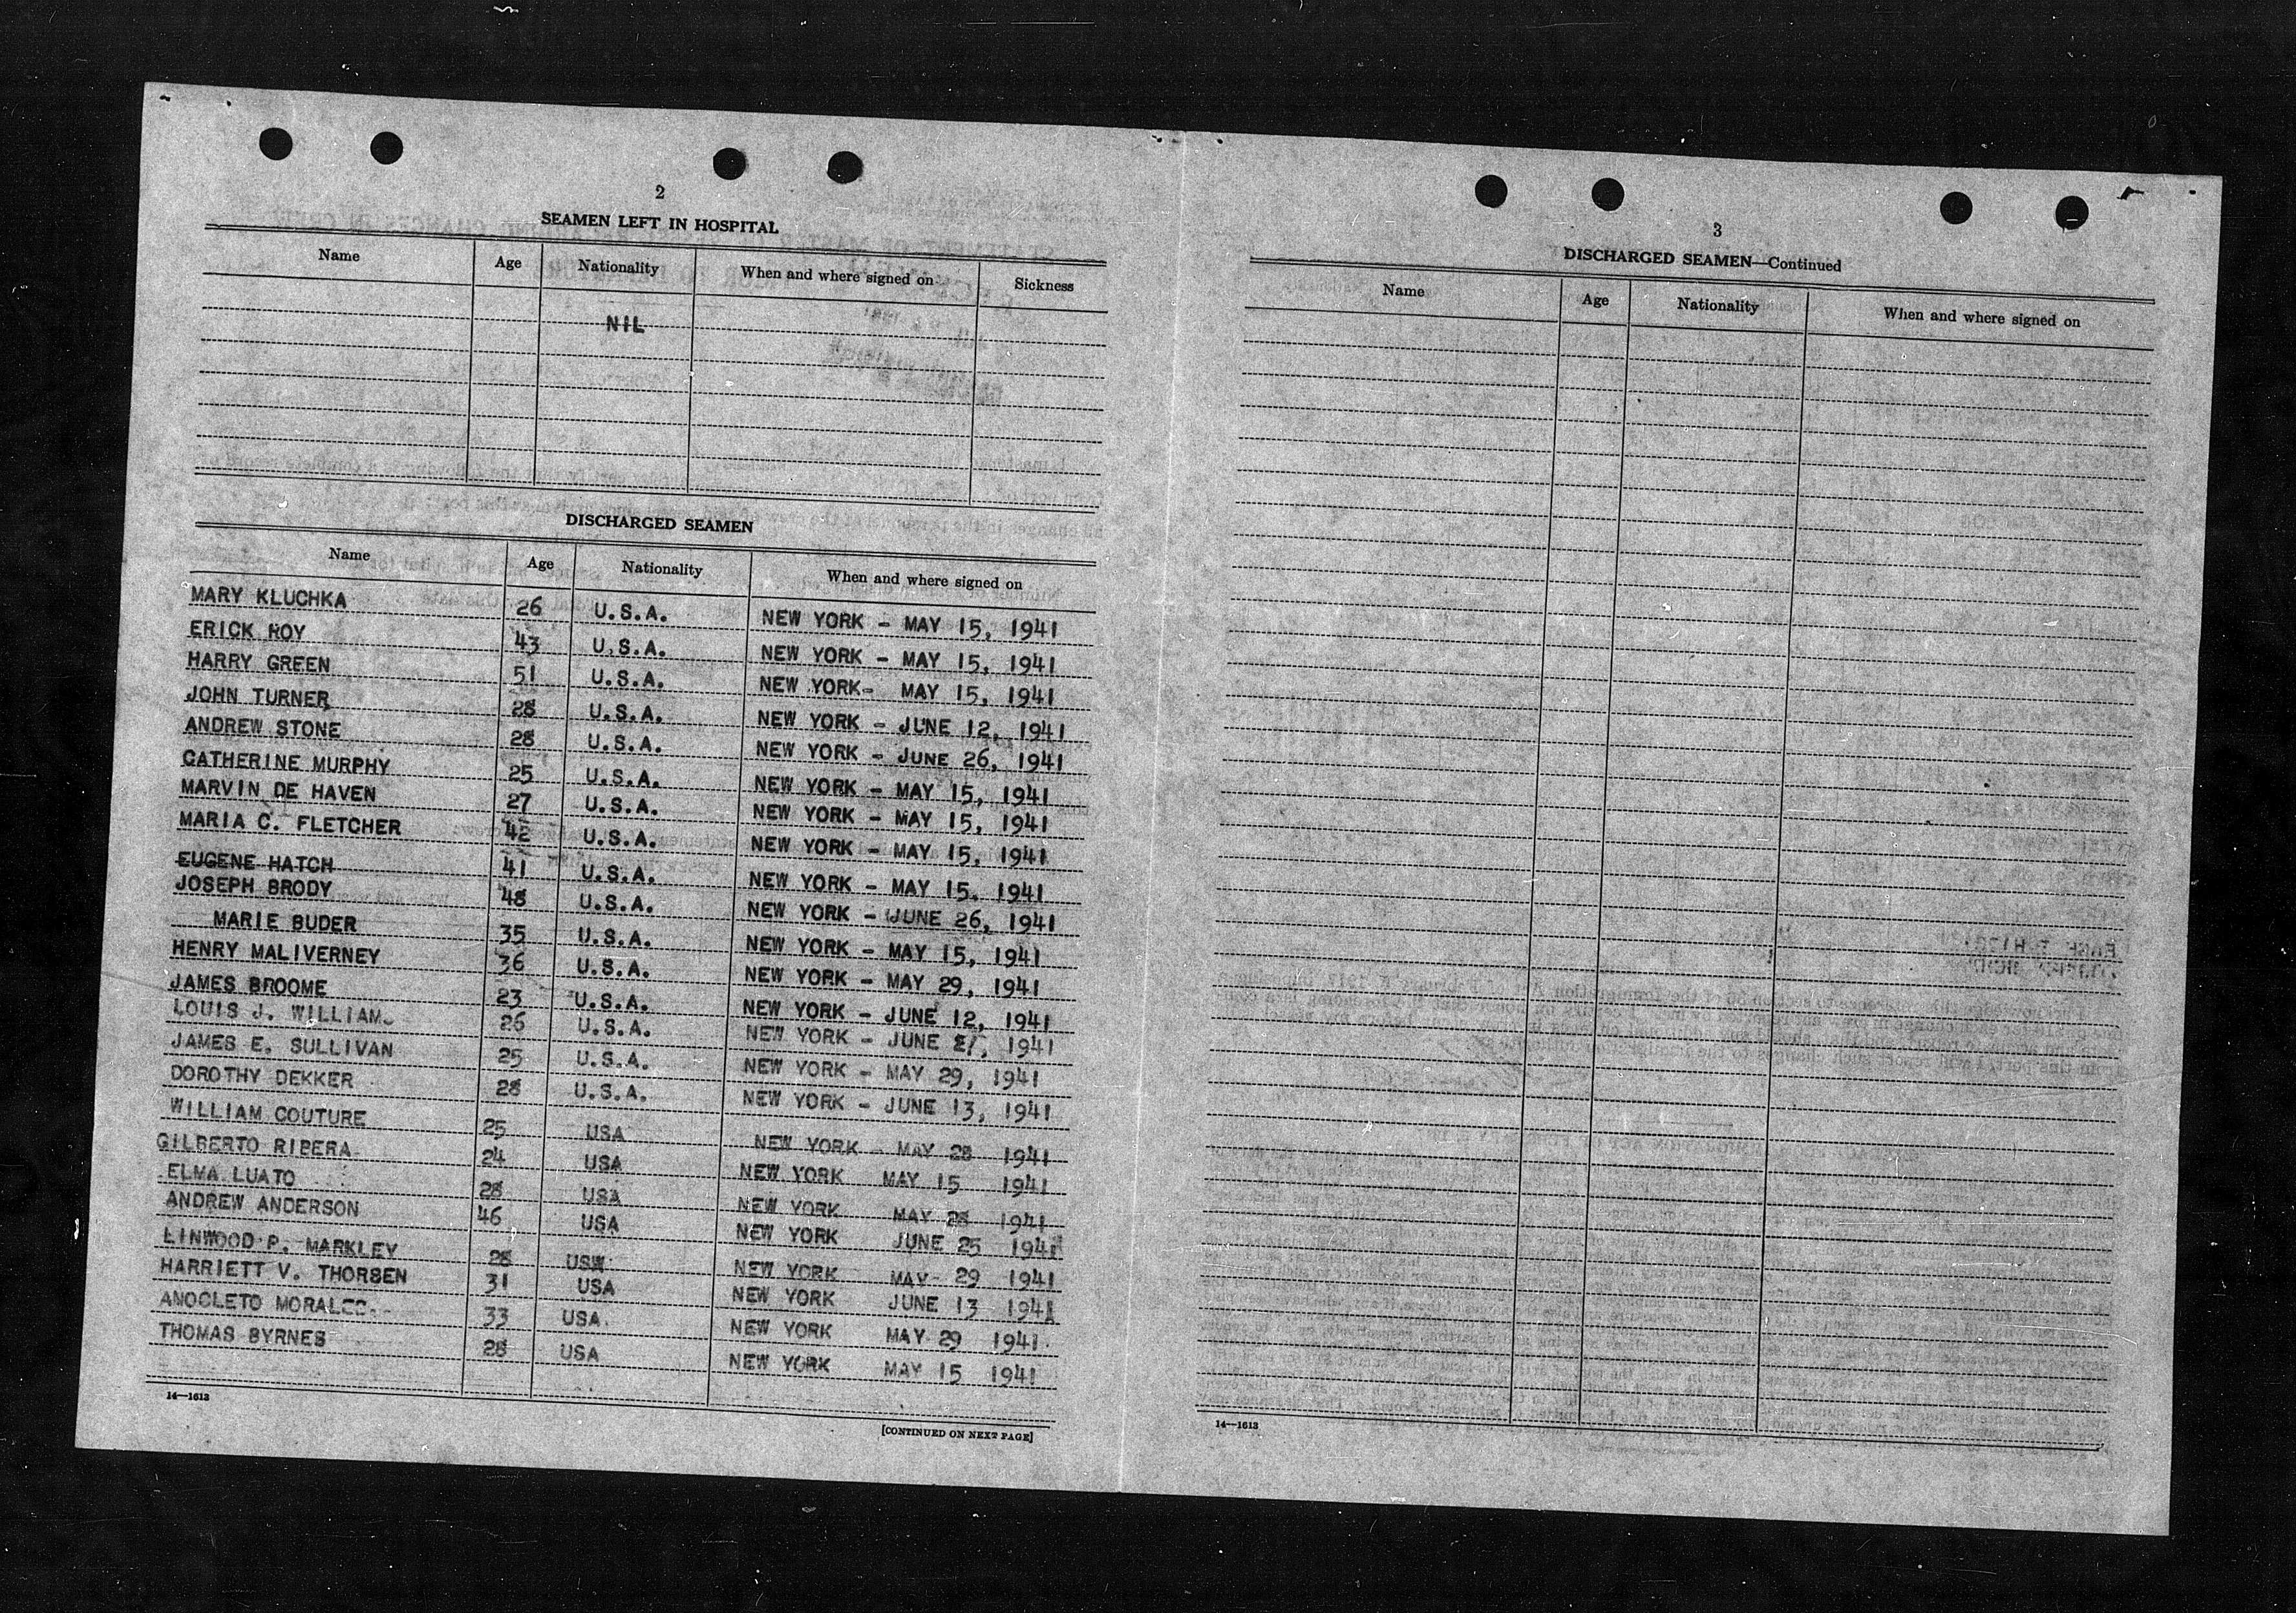 2
SEAMEN LEFT IN HOSPITAL
Name Age Nationality When and where signed on Sickness
NIL
DISCHARGED SEAMEN
Name Age Nationality When and where signed on
MARY KLUCHKA 26 U.S.A. NEW YORK - MAY 15, 1941
ERICK ROY 43 U.S.A. NEW YORK - MAY 15, 1941
HARRY GREEN 51 U.S.A. NEW YORK- MAY 15, 1941
JOHN TURNER 28 U.S.A. NEW YORK - JUNE 12, 1941
ANDREW STONE 28 U.S.A. NEW YORK - JUNE 26, 1941
CATHERINE MURPHY 25 U.S.A. NEW YORK - MAY 15, 1941
MARVIN DE HAVEN 27 U.S.A. NEW YORK - MAY 15, 1941
MARIA C. FLETCHER 42 U.S.A. NEW YORK - MAY 15, 1941
EUGENE HATCH 41 U.S.A. NEW YORK - MAY 15, 1941
JOSEPH BRODY 48 U.S.A. NEW YORK - JUNE 26, 1941
MARIE BUDER 35 U.S.A. NEW YORK - MAY 15, 1941
HENRY MALIVERNEY 36 U.S.A. NEW YORK - MAY 29, 1941
JAMES BROOME 23 U.S.A. NEW YORK - JUNE 12, 1941
LOUIS J. WILLIAM 26 U.S.A. NEW YORK - JUNE 1941
JAMES E. SULLIVAN 25 U.S.A. NEW YORK - MAY 29, 1941
DOROTHY DEKKER 28 U.S.A. NEW YORK - JUNE 13, 1941
WILLIAM COUTURE 25 USA NEW YORK - MAY 28 1941
GILBERTO RIBERA 24 USA NEW YORK MAY 15 1941
ELMA LUATO 28 USA NEW YORK MAY 28 1941
ANDREW ANDERSON 46 USA NEW YORK JUNE 25 1941
LINWOOD P. MARKLEY 28 USA NEW YORK MAY- 29 1941
HARRIETT V. THORSEN 31 USA NEW YORK JUNE 13 1941
ANOCLETO MORALES 33 USA NEW YORK MAY 29 1941
THOMAS BYRNES 28 USA NEW YORK MAY 15 1941
14—1613
[CONTINUED ON NEXT PAGE]
3
DISCHARGED SEAMEN—Continued
Name Age Nationality When and where signed on
14—1613